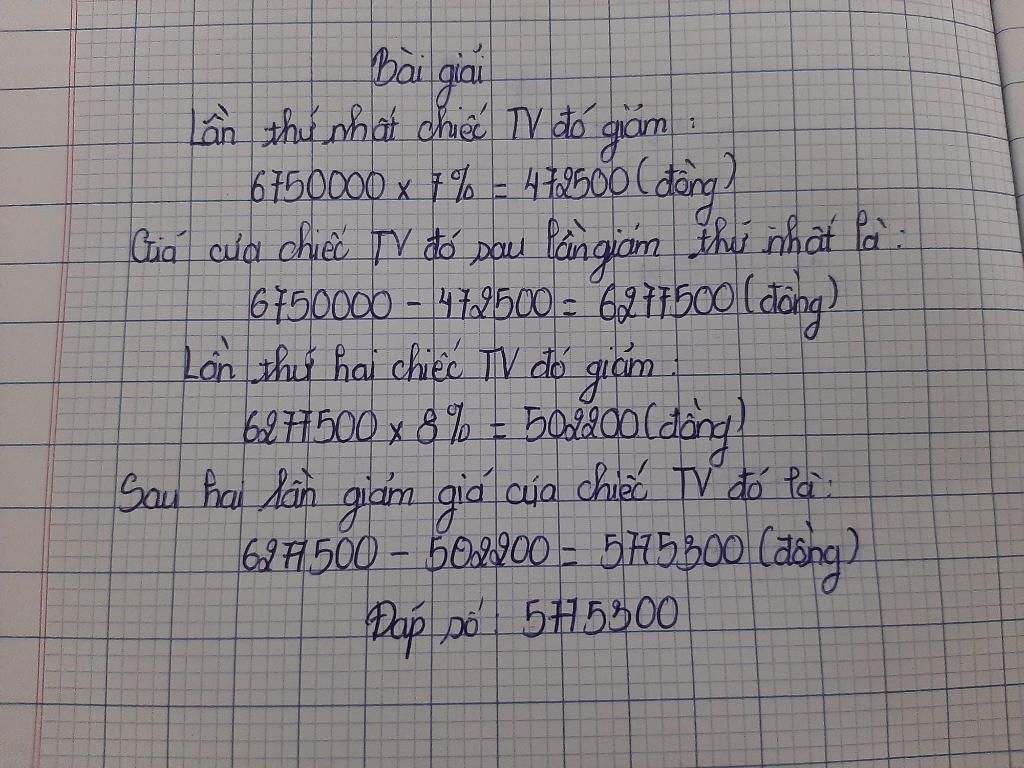 Bài giải
Lần thứ nhất chiếc TV đó giảm:
6750000 x 7% = 472500 (đồng)
Giá của chiếc TV đó sau lần giảm thứ nhất là:
6750000 - 472500 = 6277500 (đồng)
Lần thứ hai chiếc TV đó giảm:
6277500 x 8% = 502200 (đồng)
Sau hai lần giảm giá của chiếc TV đó là:
6277500 - 502200 = 5775300 (đồng)
Đáp số: 5775300